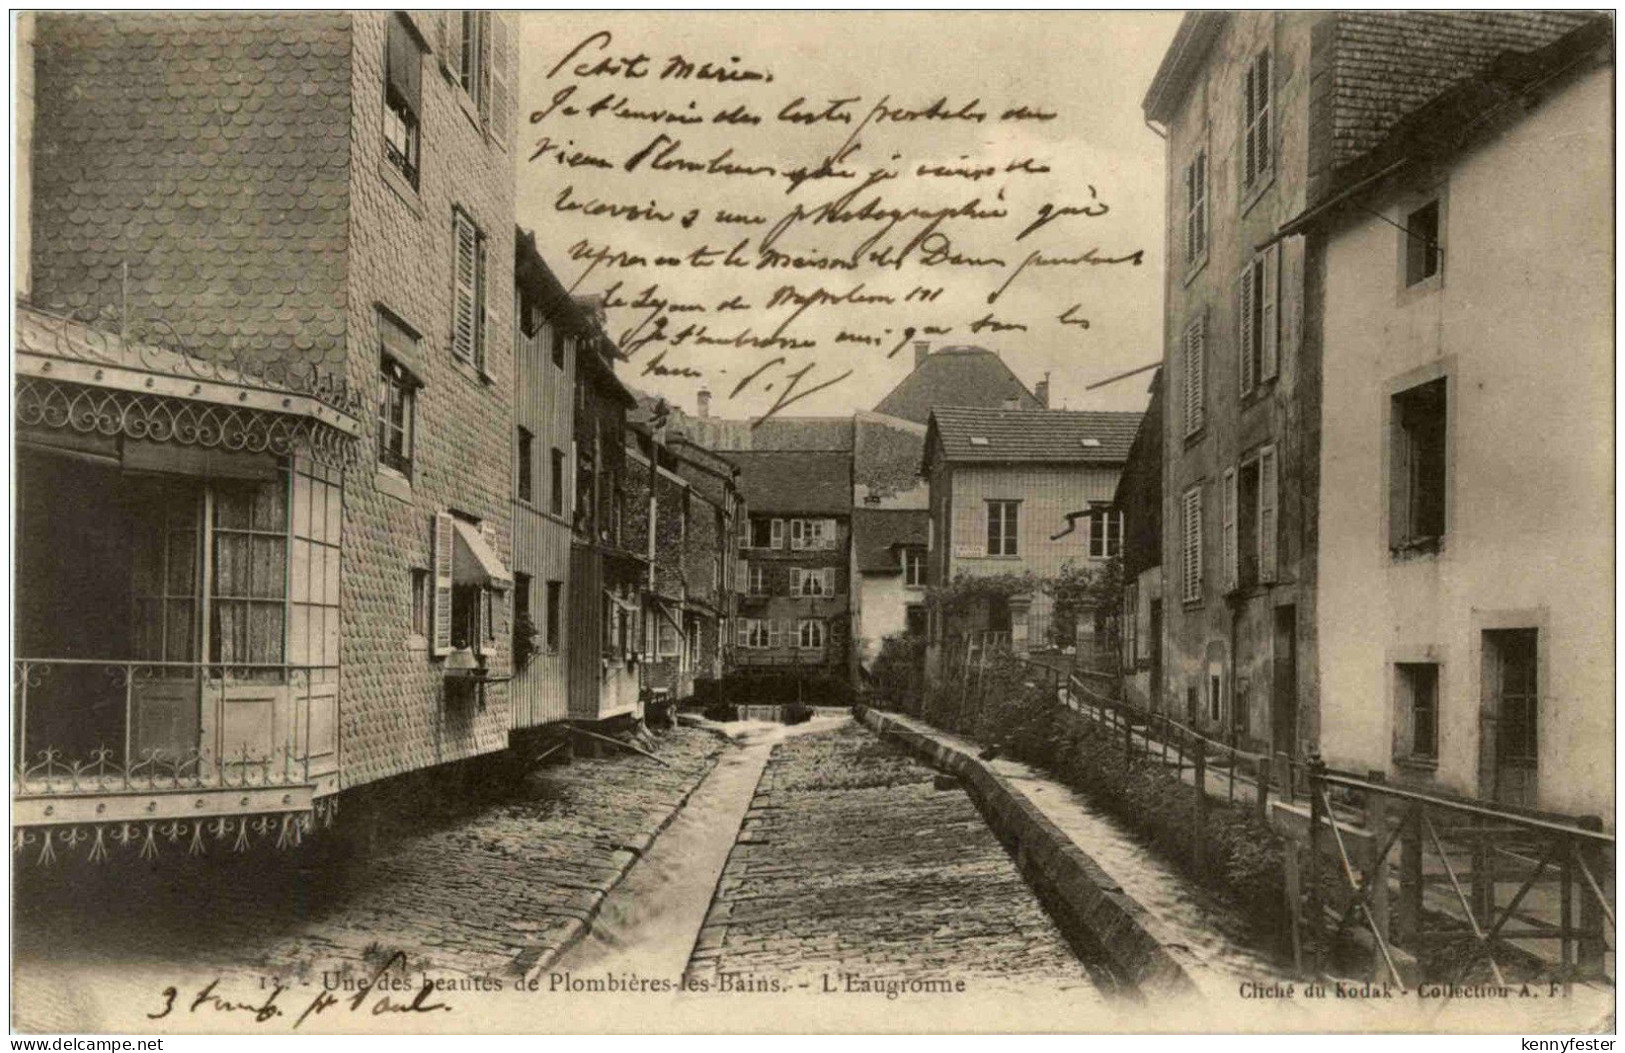 Petite Marie.
Je t'envoie des cartes postales du
vieux Plombières que je viens de
recevoir, une photographie qui
représente la maison des Dames pendant
le séjour de Napoléon III
Je t'embrasse ainsi que tous les
tiens.
13. - Une des beautés de Plombières-les-Bains. - L'Eaugronne
Cliché du Kodak - Collection A. F.
3 timb. pr Paul.
delcampe.net
kennyfester